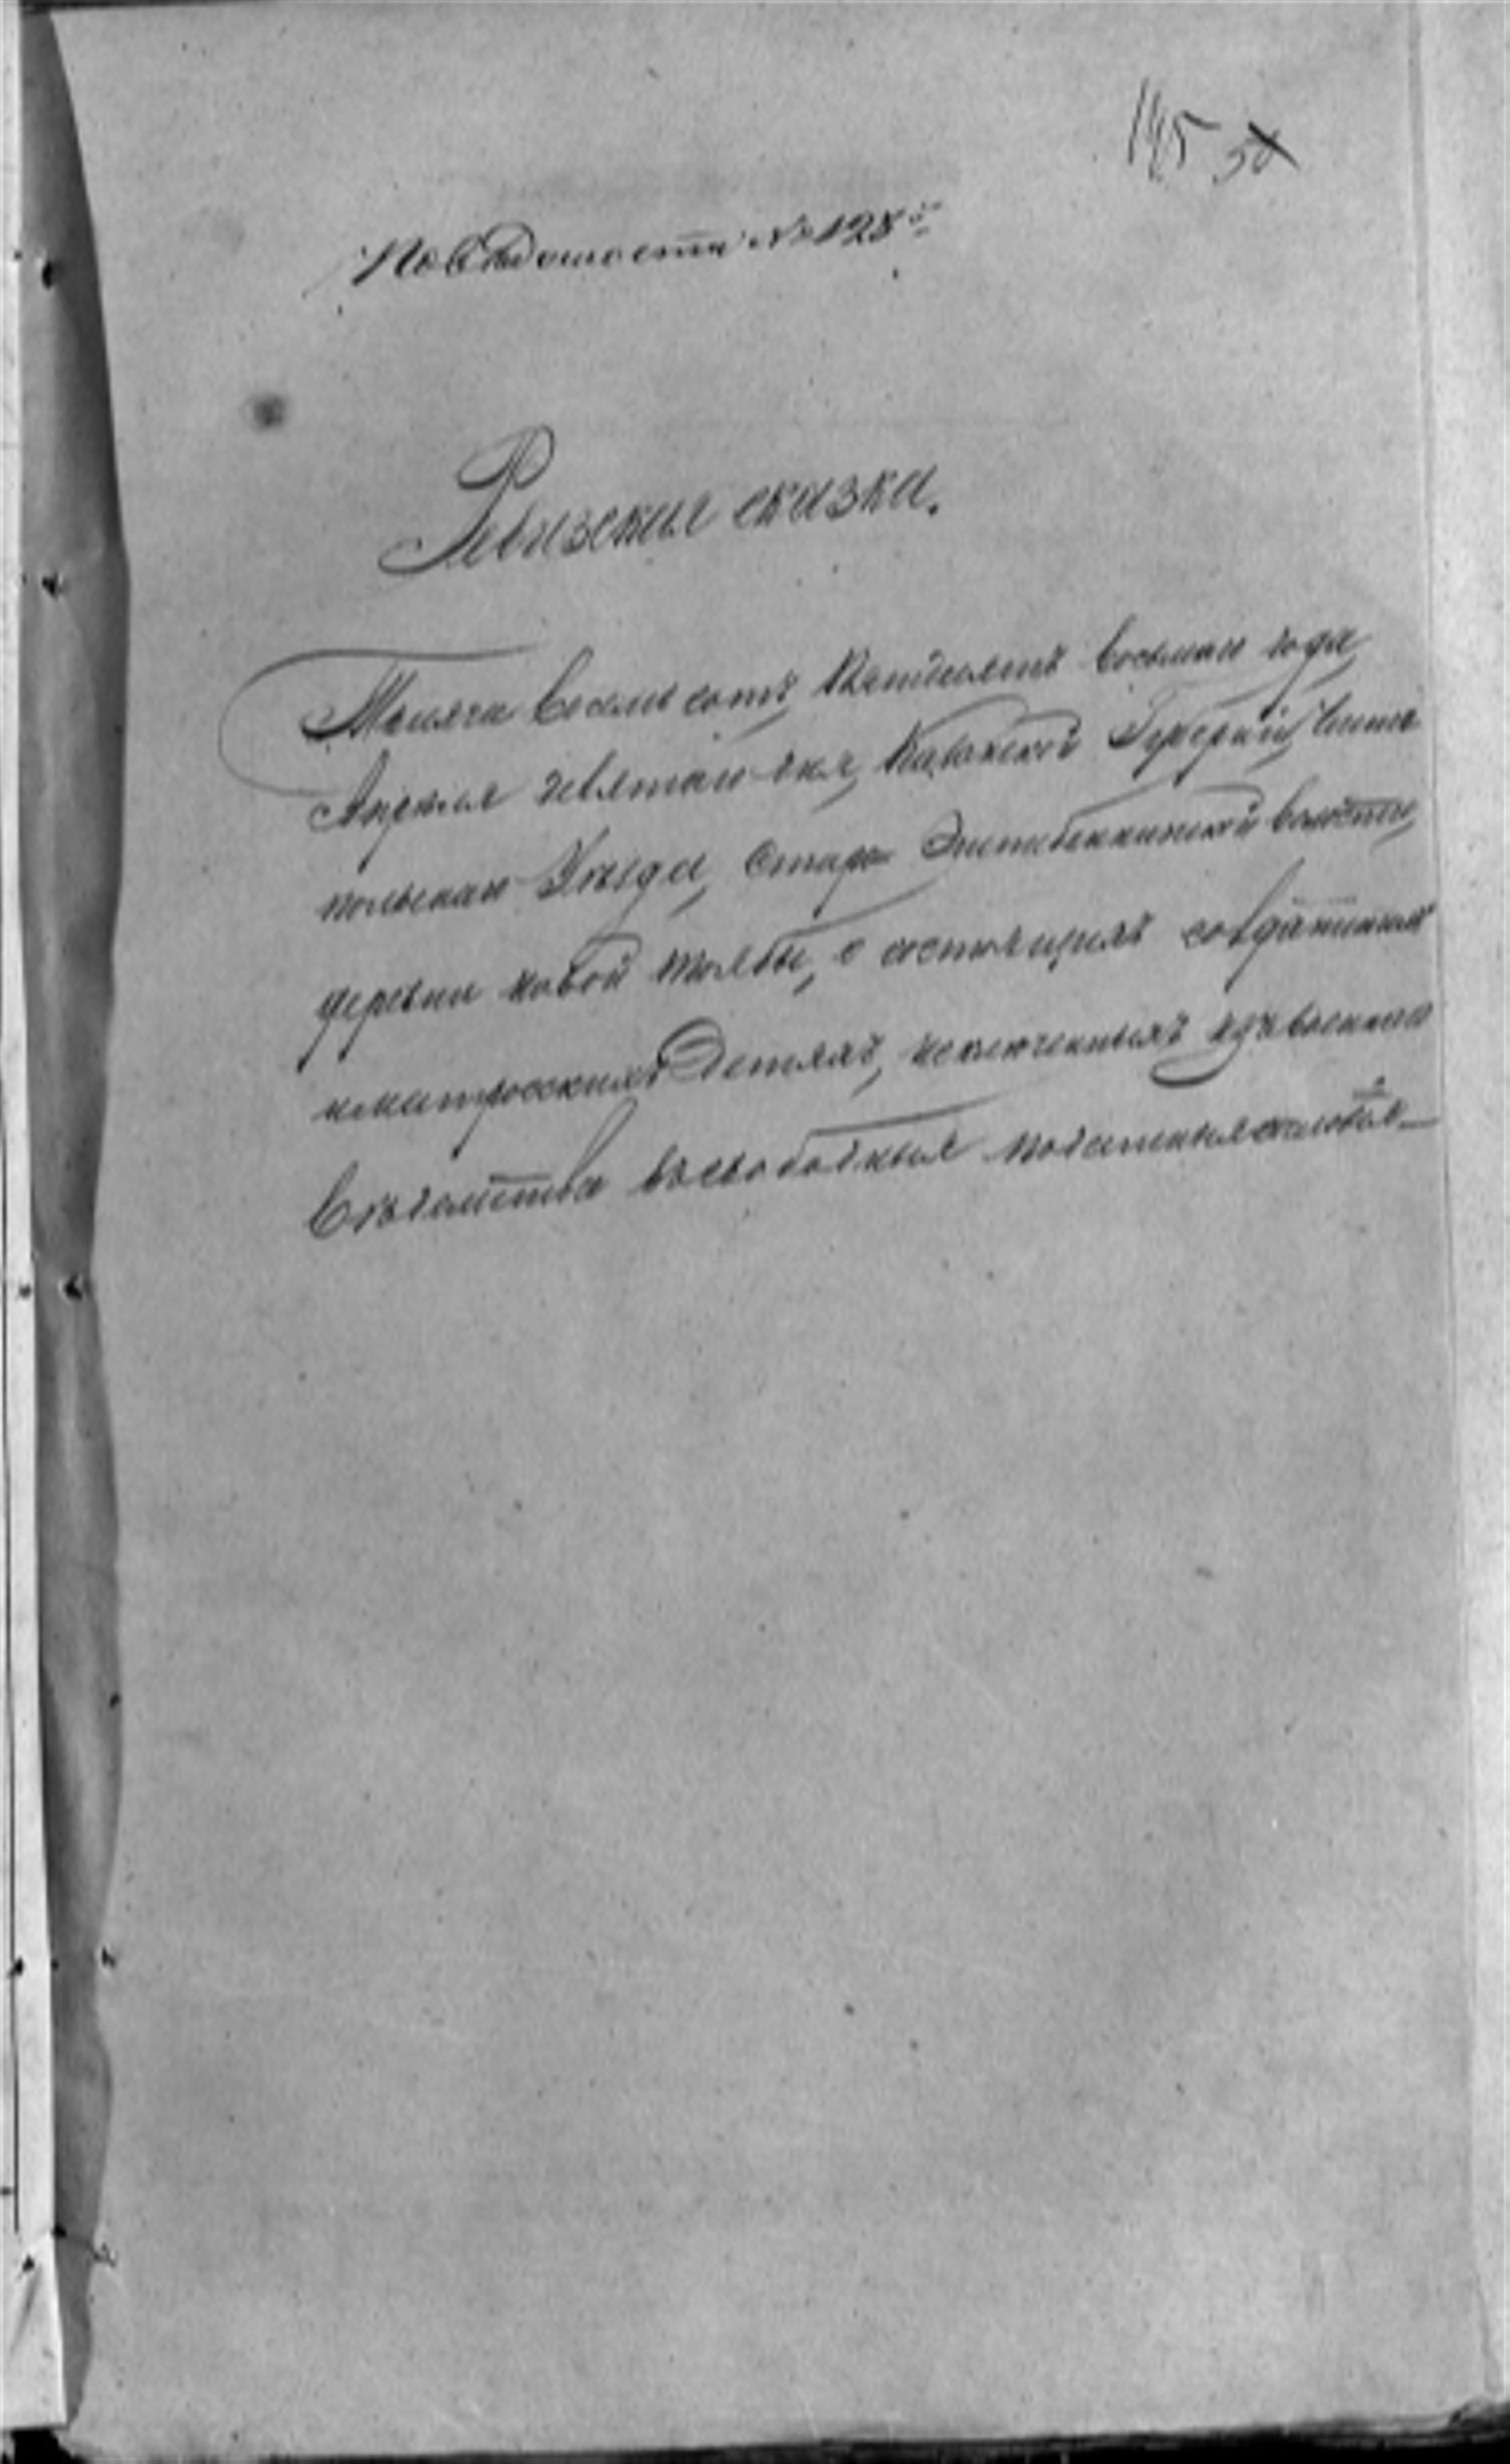 145 58
По ведомости № 128й
Ревизская сказка.
Тысяча восемь сотъ пятдесятъ восьмаго года,
Апреля девятаго дня, Казанской Губерніи, Чисто
польскаго Уезда, Старо волости,
деревни новой о состоящихъ солдатскихъ
и матросскихъ детяхъ, исключенныхъ изъ военнаго
ведомства въ свободныя податныя сословія